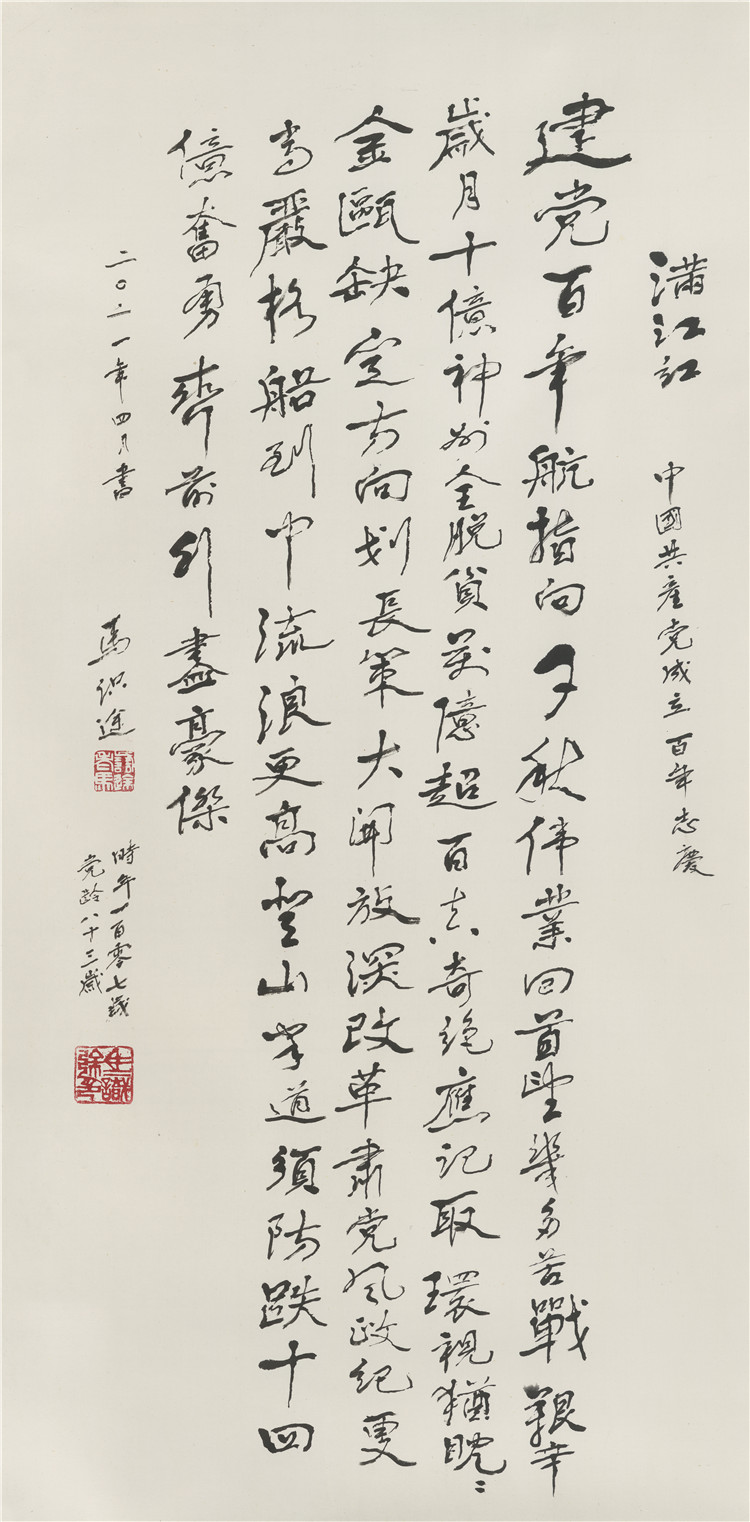 滿江红
中國共產党成立百年志慶
建党百年航指向千秋伟業回首望幾多苦戰艱辛
歲月十億神州全脱貧萬億超百真奇绝應记取環視猶眈〻
金甌缺定方向划長策大開放深改革肅党风政纪更
当嚴格船到中流浪更高登山半道須防跌十四
億奮勇齊前列盡豪傑
二〇二一年四月書
馬识途
識途老馬
時年一百零七歲
党龄八十三歲